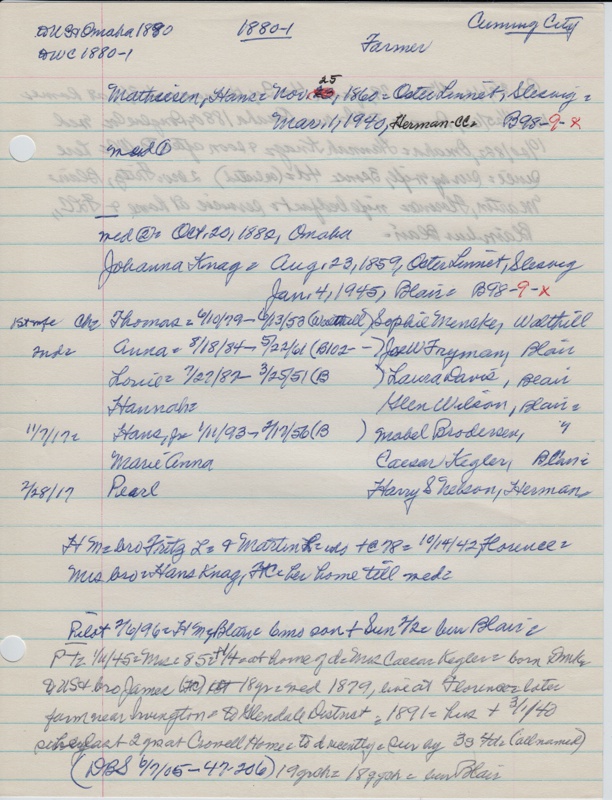 to US & Omaha 1880 1880-1 Cuming City
to WC 1880-1 Farmer
Mathiesen, Hans = Nov. 25, 1860 = Oster Linnet, Sleswig =
Mar. 1, 1940, Herman-CC = B98-9-x
med ①
med ② = Oct. 20, 1882, Omaha
Johanna Knag = Aug. 23, 1859, Oster Linnet, Sleswig
Jan. 4, 1945, Blair = B98-9-x
1st wife Ch = Thomas = 6/10/79 - 6/13/53 (Walthill) Sophie Mencke, Walthill
2nd = Anna = 8/18/84 - 5/22/61 (B102 - - ) Joe W Fryman, Blair
Louie = 7/27/87 - 3/25/51 (B ) Laura Davis, Blair
Hannah = Glen Wilson, Blair =
11/7/17 = Hans, Jr = 1/11/93 - 2/17/56 (B ) Mabel Brodersen, "
Marie Anna Caesar Kegler, Blair =
2/28/17 Pearl Harry S Nelson, Herman =
H M = bro Fritz L = & Martin = 10/14/42 Florence =
Mrs bro = Hans Knag, = her home till med =
Pilot 2/6/96 = H M, Blair = 6 mo son + Sun 2/2 = bur Blair =
P + = 1/11/45 = Mrs = 85 = + 1/4 at home of d = Mrs Caesar Kegler = born Dmk =
to US & bro James 18 yr = med 1879, live at Florence = later
farm near Irvington = to Glendale District = 1891 = hus + 3/1/40
last 2 yr at Crowell Home = to d recently = sur by 3s 4d = (all named)
(DBS 6/7/05-47-206) 19 grch = 18 ggch = bur Blair